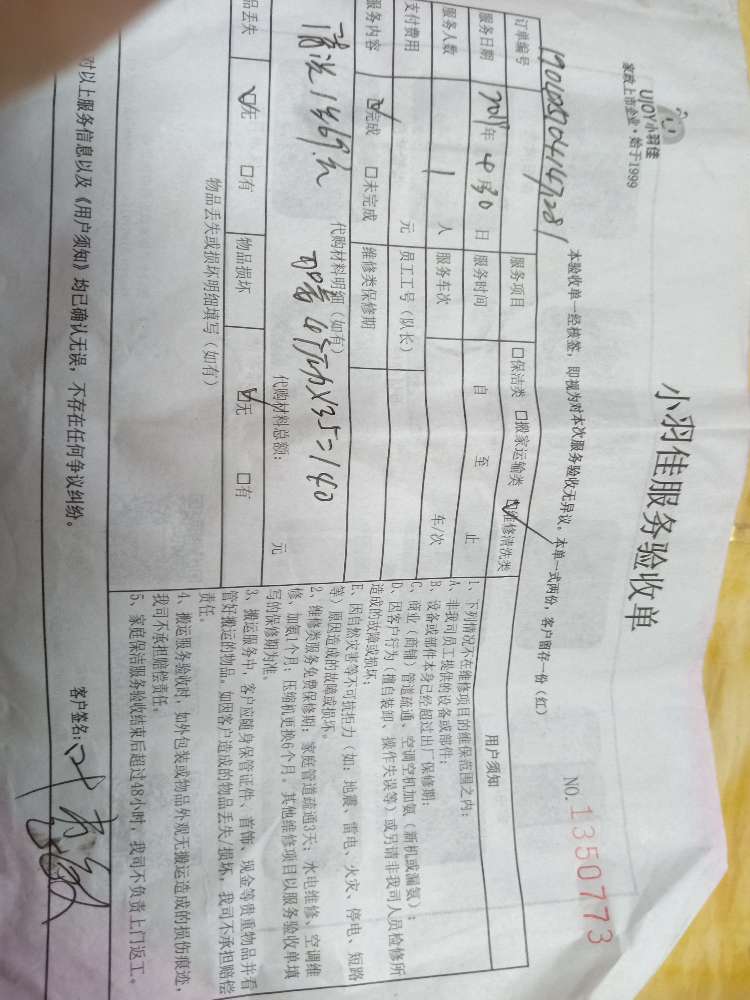 UJOY小羽佳
家政上市企业·始于1999
小羽佳服务验收单
NO.1350773
本验收单一经核签，即视为对本次服务验收无异议。本单一式两份，客户留存一份（红）
订单编号
服务项目 □保洁类 □搬家运输类 ☑维修清洗类
服务日期 年 4 月30 日 服务时间 自 至 止
服务人数 1 人 服务车次 车/次
支付费用 元 员工工号（队长）
服务内容 ☑完成 □未完成 维修类保修期
代购材料明细（如有）
代购材料总额： 元
品丢失 ☑无 □有 物品损坏 ☑无 □有
物品丢失或损坏明细填写（如有）
用户须知
1、下列情况不在维修项目的维保范围之内：
A、非我司员工提供的设备或部件；
B、设备或部件本身已经超过出厂保修期；
C、商业（商铺）管道疏通、空调空机加氨（新机或漏氨）；
D、因客户行为（擅自装卸、操作失误等）或另请非我司人员检修所
造成的故障或损坏；
E、因自然灾害等不可抗拒力（如：地震、雷电、火灾、停电、短路
等）原因造成的故障或损坏。
2、维修类服务免费保修期：家庭管道疏通3天；水电维修、空调维
修、加氨1个月；压缩机更换6个月。其他维修项目以服务验收单填
写的保修期为准。
3、搬运服务中，客户应随身保管证件、首饰、现金等贵重物品并看
管好搬运的物品。如因客户造成的物品丢失/损坏，我司不承担赔偿
责任。
4、搬运服务验收时，如外包装或物品外观无搬运造成的损伤痕迹，
我司不承担赔偿责任。
5、家庭保洁服务验收结束后超过48小时，我司不负责上门返工。
对以上服务信息以及《用户须知》均已确认无误，不存在任何争议纠纷。
客户签名：